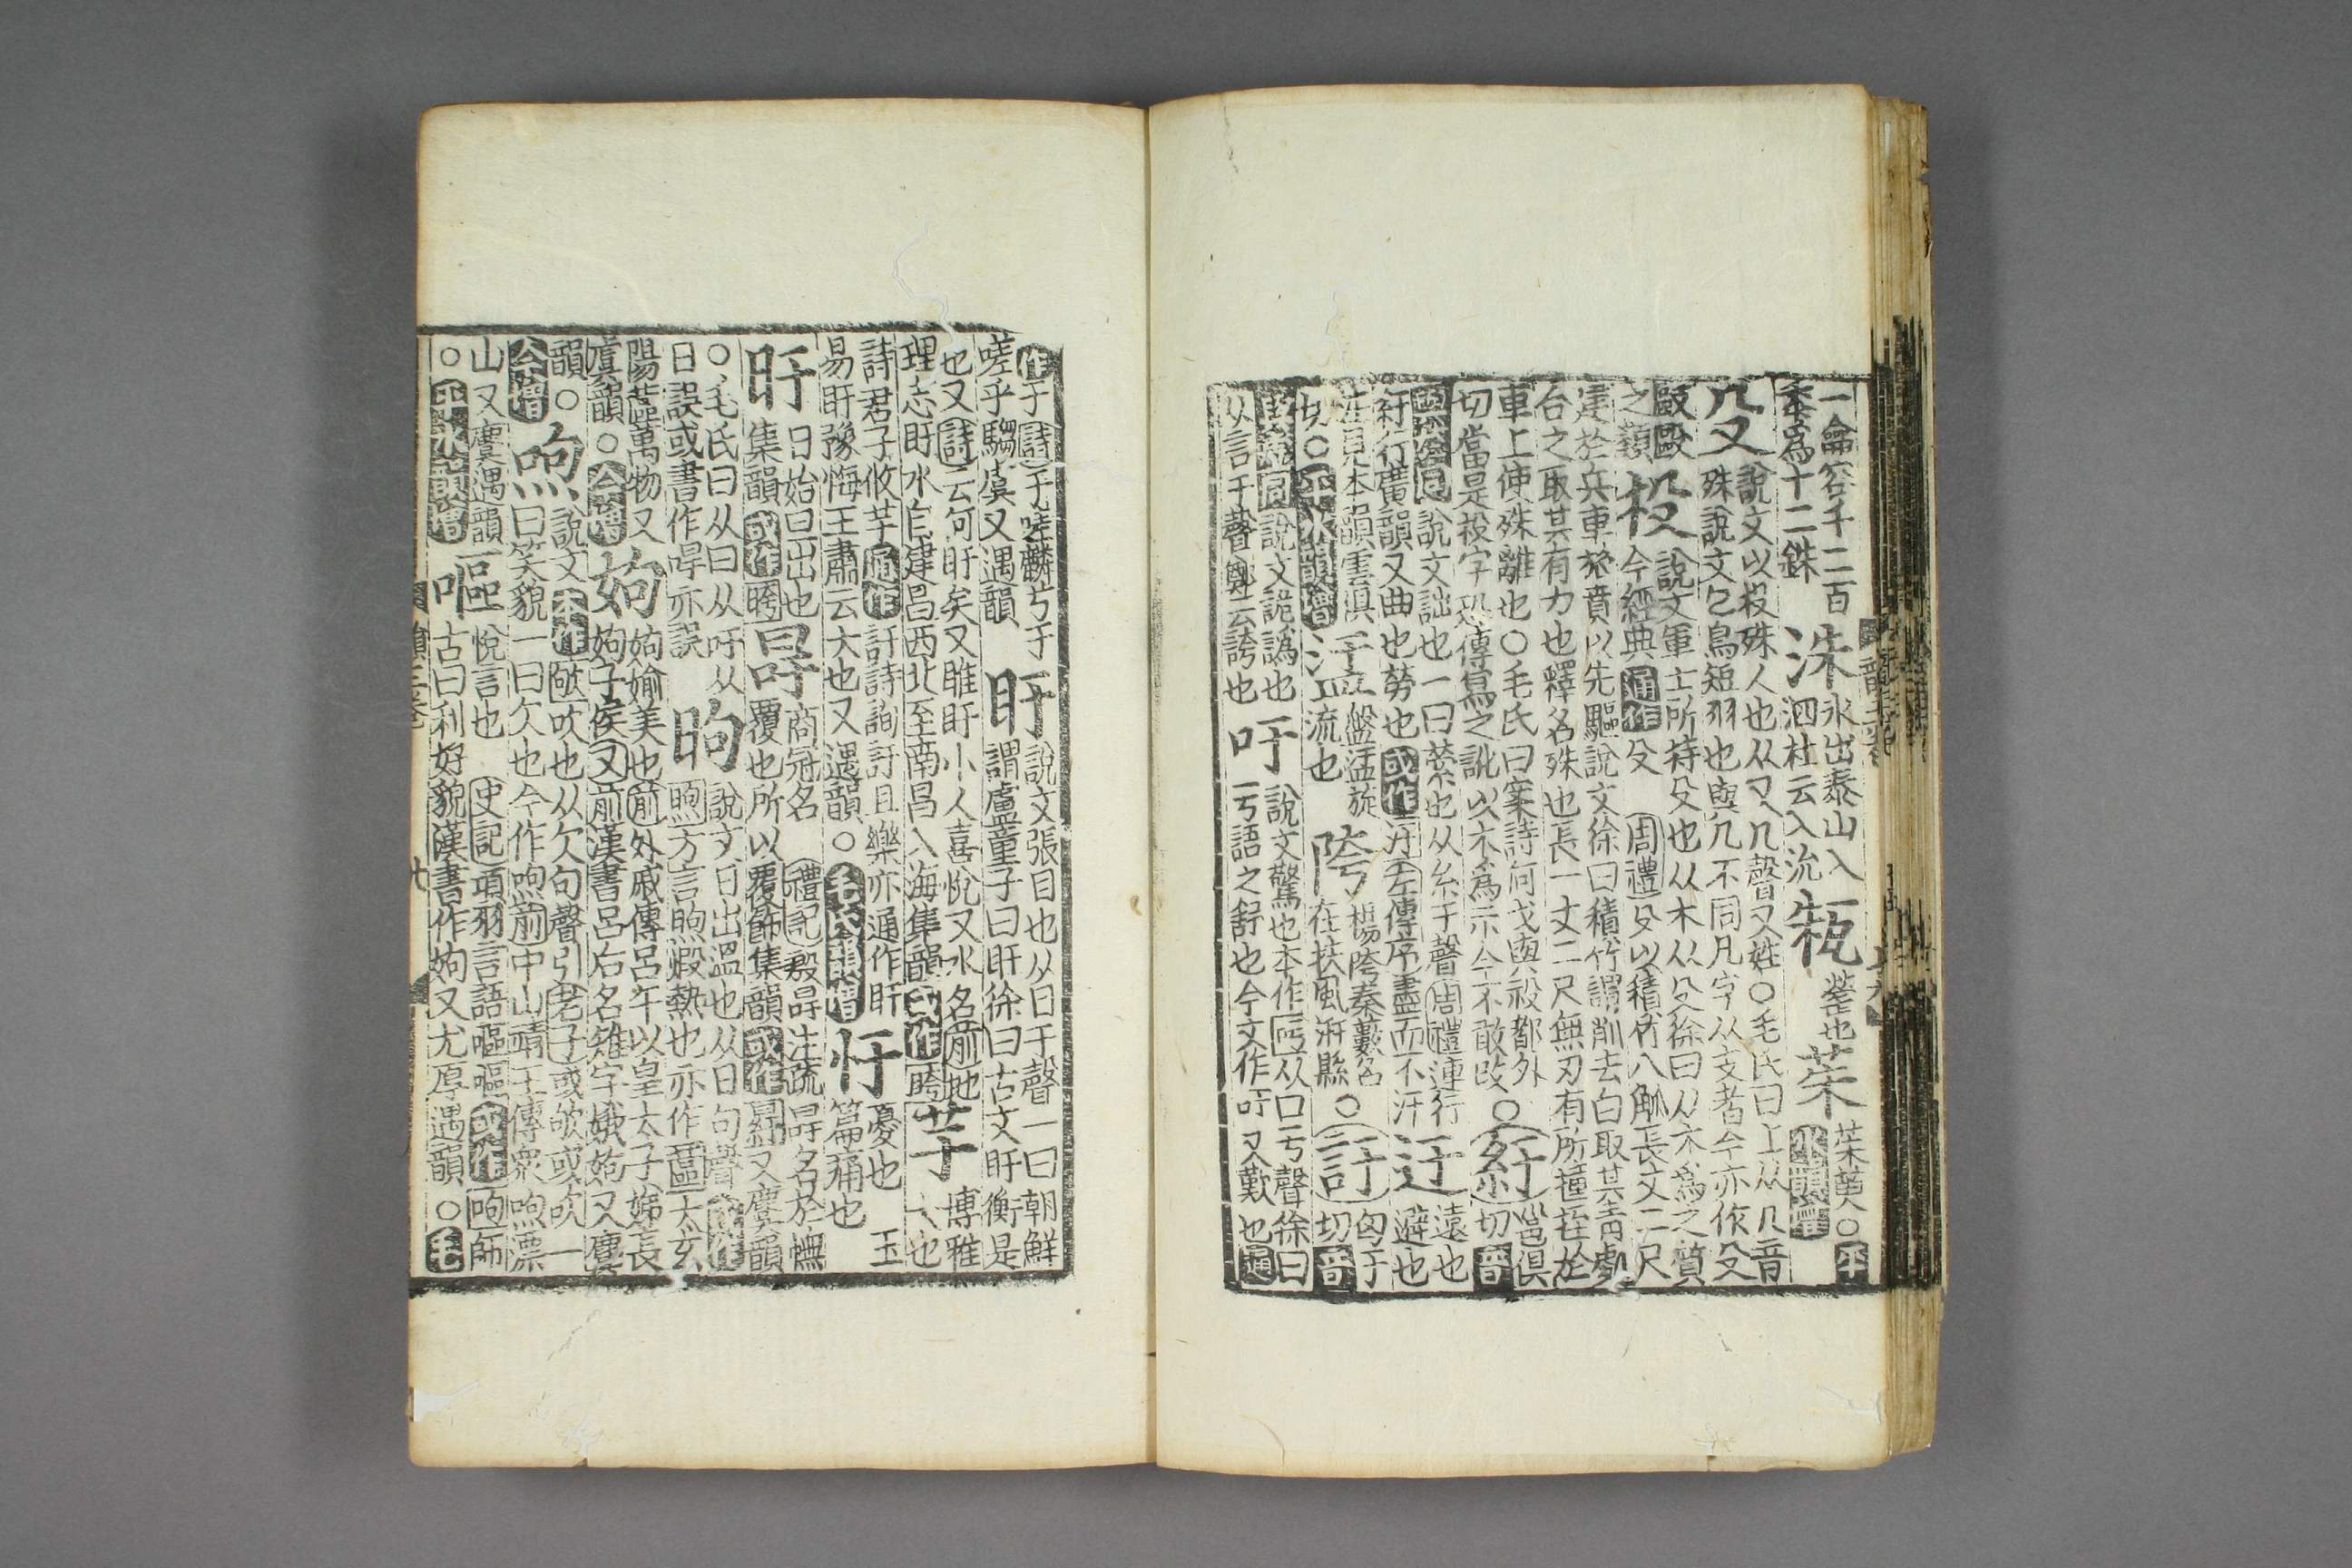 一龠容千二百
黍爲十二銖
洙
水出泰山入
泗杜云入沇
𤬪
瑩也
茱
茱萸○平
水韻增
殳
說文以杸殊人也从又几聲又姓○毛氏曰上从几音
殊說文乞鳥短羽也與几不同凡字从支者今亦作殳
毆敺
之類
杸
說文軍士所持殳也从木从殳徐曰从木爲之質
今經典通作殳
周禮殳以積竹八觚長丈二尺
建於兵車旅賁以先驅說文徐曰積竹謂削去白取其青
台之取其有力也釋名殊也長一丈二尺無刃有所撞挃於
車上使殊離也○毛氏曰案詩何戈與祋都外
切當是杸字恐傳寫之訛以木爲示今不敢改
○紆
邕俱
切音
與
說文詘也一曰縈也从糸于聲周禮連行
紆行廣韻又曲也勞也或作汙左傳序盡而不汙
迂
遠也
避也
注見本韻雲俱
切○平水韻增
盓
盤盓旋
流也
陓
楊陓秦藪名
在扶風汧縣○
訏
匈于
切音
同說文詭譌也
从言于聲輿云誇也
吁
說文驚也本作𠵇从口亏聲徐曰
亏語之舒也今文作吁又歎也通
作于詩于嗟麟兮于
嗟乎騶虞又遇韻
盱
說文張目也从目于聲一曰朝鮮
謂盧童子曰盱徐曰古文盱衡是
也又詩云何盱矣又睢盱小人喜悅又水名前地
理志盱水自建昌西北至南昌入海集韻或作䀢
芋
博雅
大也
詩君子攸芋通作訏詩詢訏且樂亦通作盱
易盱豫悔王肅云大也又遇韻○毛氏韻增
忓
憂也玉
篇痛也
旴
日始曰出也
集韻或作晇
冔
商冠名禮記殷冔注疏冔名於幠
覆也所以覆飾集韻或作
又麌韻
○毛氏曰从曰从吁从
日誤或書作㫵亦誤
昫
說文日出溫也从日句聲或作
煦方言煦煆熱也亦作䕓太玄
陽䕓萬物又
麌韻○今增
姁
姁婾美也前外戚傳呂午以皇太子姊長
姁子侯又前漢書呂后名雉字娥姁又麌
韻○
今增
喣
說文本作欨吹也从欠句聲引老子或欨或吹一
曰笑貌一曰欠也今作喣前中山靖王傳衆喣漂
山又麌遇韻
○平水韻增
嘔
悅言也史記項羽言語嘔嘔或作呴師
古曰利好貌漢書作姁又尤厚遇韻○毛